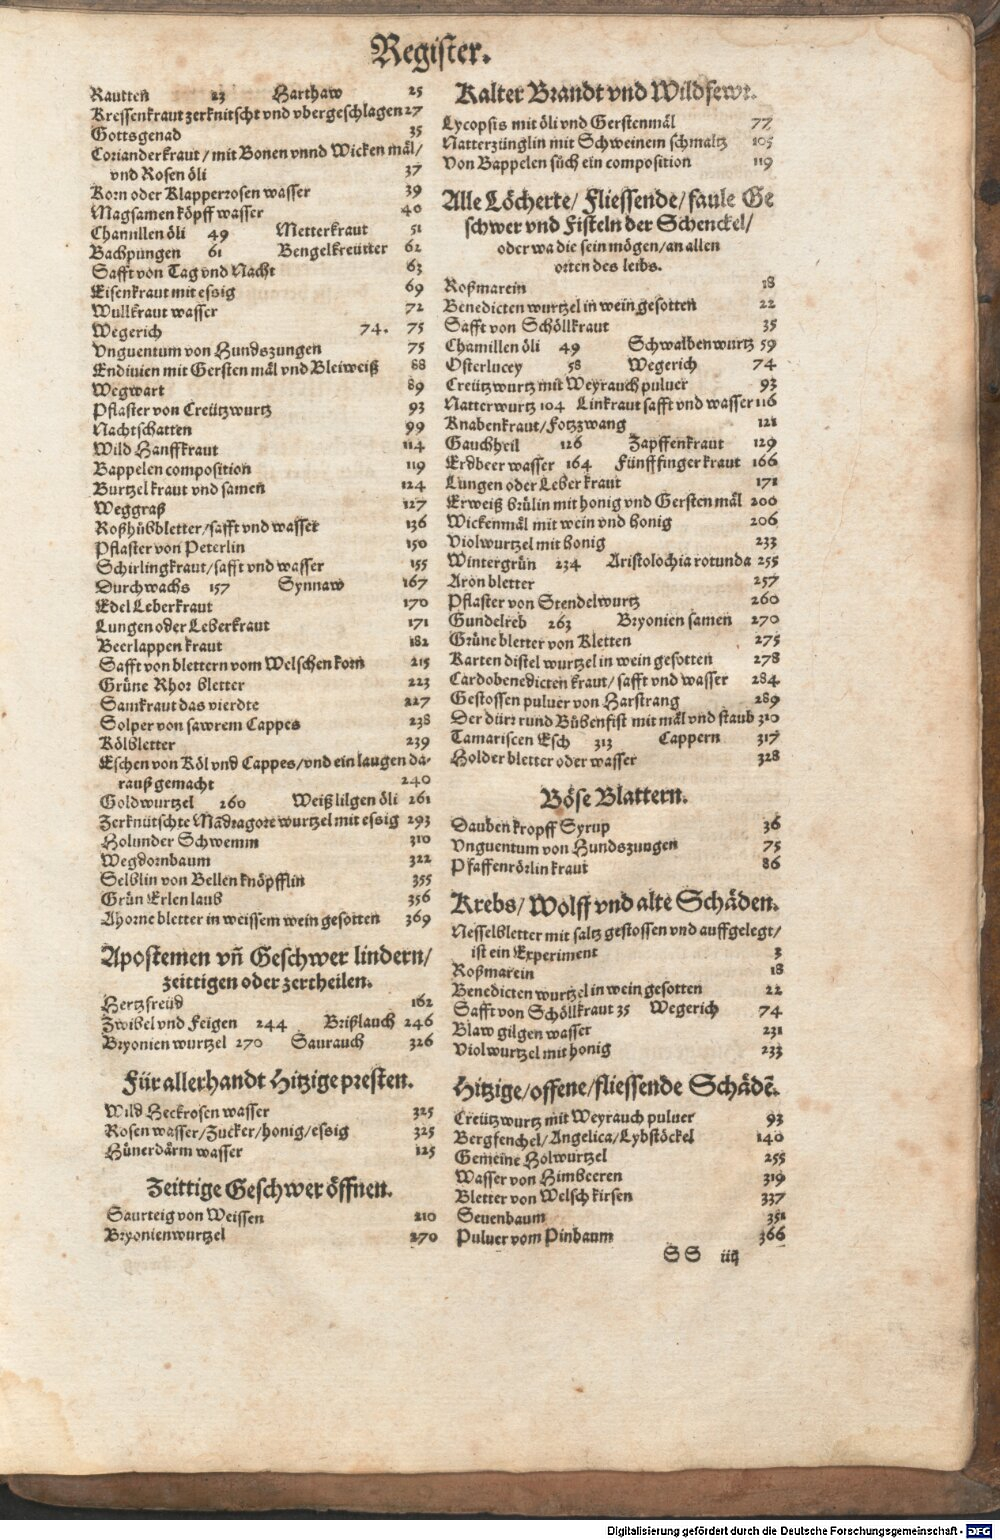 Register.
Rautten 23 Harthaw 25
Kressenkraut zerknitscht vnd vbergeschlagen 27
Gottsgenad 35
Corianderkraut / mit Bonen vnnd Wicken mäl /
vnd Rosen öli 37
Korn oder Klapperrosen wasser 39
Magsamen köpff wasser 40
Chamillen öli 49 Metterkraut 51
Bachpungen 61 Bengelkreutter 62
Safft von Tag vnd Nacht 63
Eisenkraut mit essig 69
Wullkraut wasser 72
Wegerich 74. 75
Vnguentum von Hundszungen 75
Endiuien mit Gersten mäl vnd Bleiweiß 88
Wegwart 89
Pflaster von Creützwurtz 93
Nachtschatten 99
Wild Hanffkraut 114
Bappelen composition 119
Burtzelkraut vnd samen 124
Weggraß 127
Roßhübbletter / safft vnd wasser 136
Pflaster von Peterlin 150
Schirlingkraut / safft vnd wasser 155
Durchwachs 157 Synnaw 167
Edel Leberkraut 170
Lungen oder Leberkraut 171
Beerlappen kraut 182
Safft von blettern vom Welschen korn 215
Grüne Rhor bletter 223
Samkraut das vierdte 227
Solper von sawrem Cappes 238
Kölbletter 239
Eschen von Köl vnd Cappes / vnd ein laugen da-
rauß gemacht 240
Goldwurtzel 260 Weiß lilgen öli 261
Zerknütschte Mãdragore wurtzel mit essig 293
Holunder Schwemm 310
Wegdornbaum 322
Selblin von Bellen knöpfflin 355
Grün Erlen laub 356
Ahorne bletter in weissem wein gesotten 369
Apostemen vñ Geschwer lindern /
zeittigen oder zertheilen.
Hertzfreüd 162
Zwibel vnd Feigen 244 Brißlauch 246
Bryonien wurtzel 270 Saurauch 326
Für allerhandt Hitzige presten.
Wild Heckrosen wasser 325
Rosen wasser / Zucker / honig / essig 325
Hünerdärm wasser 125
Zeittige Geschwer öffnen.
Saurteig von Weissen 210
Bryonienwurtzel 270
Kalter Brandt vnd Wildfewr.
Lycopsis mit öli vnd Gerstenmäl 77
Natterzünglin mit Schweinem schmaltz 105
Von Bappelen süch ein composition 119
Alle Löcherte / Fliessende / faule Ge
schwer vnd Fisteln der Schenckel /
oder wa die sein mögen / an allen
orten des leibs.
Roßmarein 18
Benedicten wurtzel in wein gesotten 22
Safft von Schöllkraut 35
Chamillen öli 49 Schwalbenwurtz 59
Osterlucey 58 Wegerich 74
Creützwurtz mit Weyrauch puluer 93
Natterwurtz 104 Linkraut safft vnd wasser 116
Knabenkraut / Fotzzwang 121
Gauchheil 126 Zapffenkraut 129
Erdbeer wasser 164 Fünfffinger kraut 166
Lungen oder Leber kraut 171
Erweiß brülin mit honig vnd Gersten mäl 200
Wickenmäl mit wein vnd honig 206
Violwurtzel mit honig 233
Wintergrün 234 Aristolochia rotunda 255
Aron bletter 257
Pflaster von Stendelwurtz 260
Gundelreb 263 Bryonien samen 270
Grüne bletter von Kletten 275
Karten distel wurtzel in wein gesotten 278
Cardobenedicten kraut / safft vnd wasser 284
Gestossen puluer von Harstrang 289
Der dürr rund Bübenfist mit mäl vnd staub 310
Tamariscen Esch 313 Cappern 317
Holder bletter oder wasser 328
Böse Blattern.
Dauben kropff Syrup 36
Vnguentum von Hundszungen 75
Pfaffenrörlin kraut 86
Krebs / Wolff vnd alte Schäden.
Nesselbletter mit saltz gestossen vnd auffgelegt /
ist ein Experiment 3
Roßmarein 18
Benedicten wurtzel in wein gesotten 22
Safft von Schöllkraut 35 Wegerich 74
Blaw gilgen wasser 231
Violwurtzel mit honig 233
Hitzige / offene / fliessende Schädẽ.
Creützwurtz mit Weyrauch puluer 93
Bergfenchel / Angelica / Lybstöckel 140
Gemeine Holwurtzel 255
Wasser von Himbeeren 319
Bletter von Welsch kirsen 337
Seuenbaum 351
Puluer vom Pinbaum 366
SS iiij
Digitalisierung gefördert durch die Deutsche Forschungsgemeinschaft - DFG